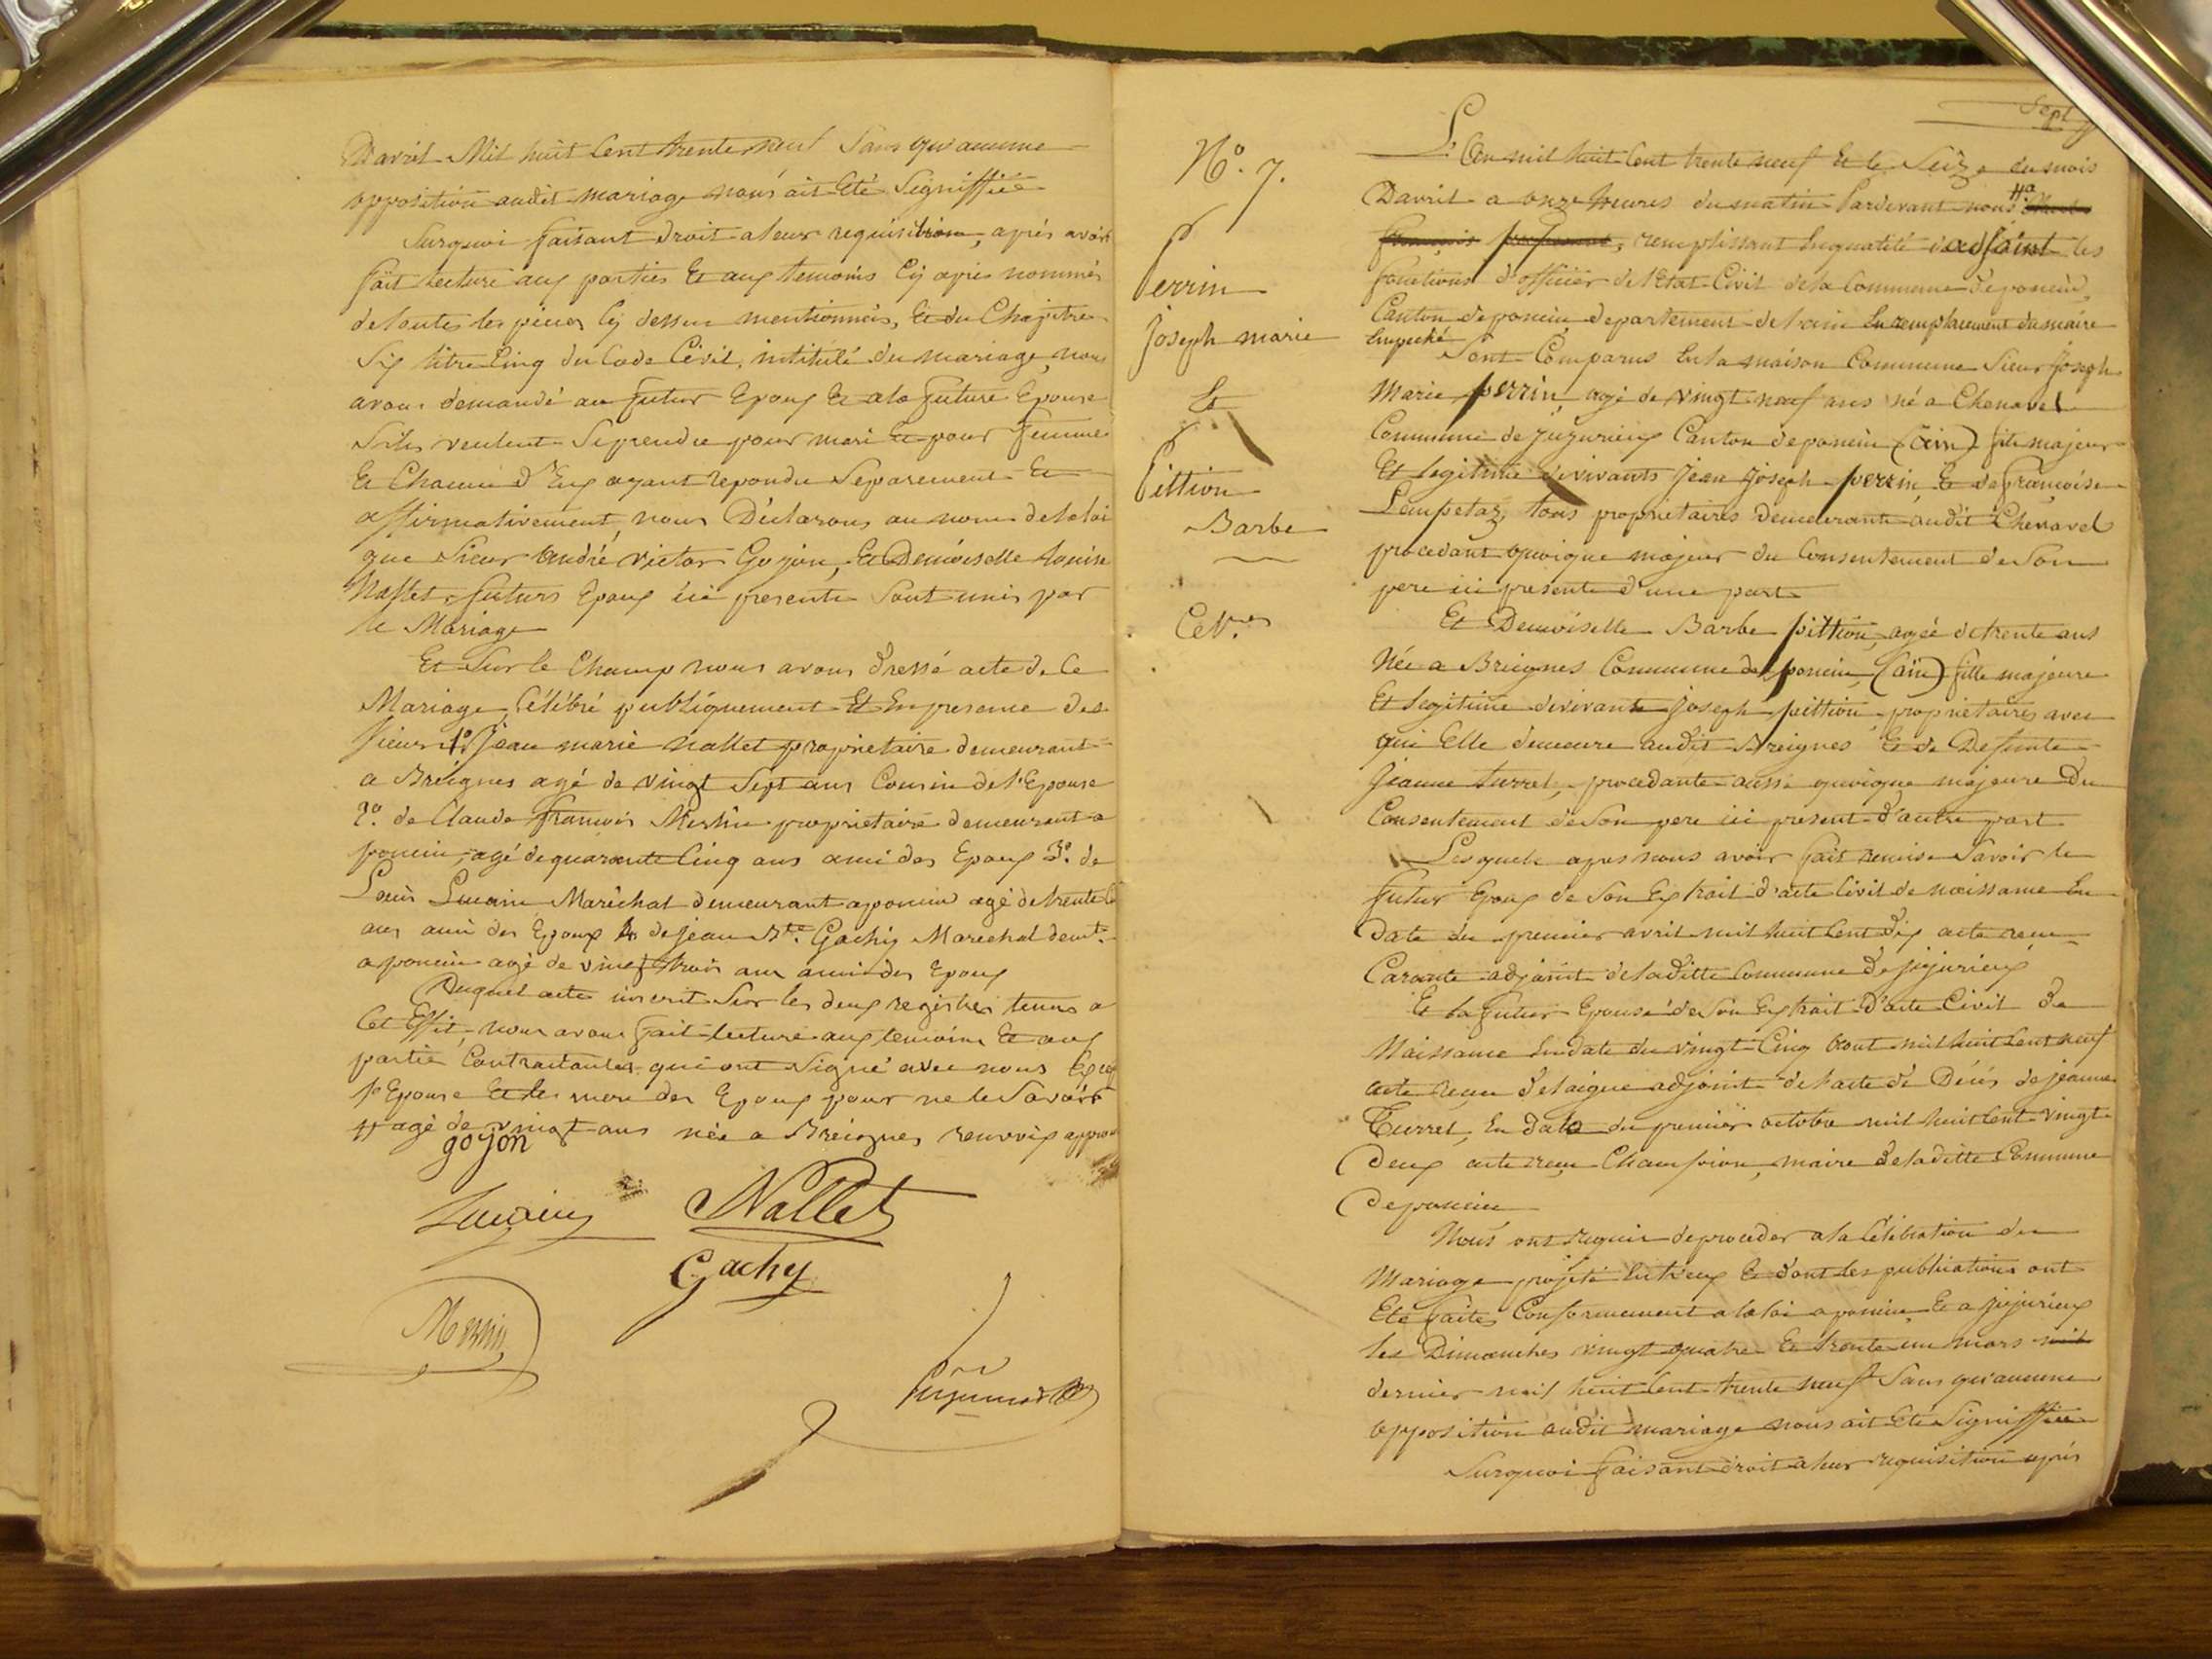 Davril Mil huit Cent trente neuf Sans qu'aucune
opposition audit mariage nous ait Eté Signiffiée
Surquoi faisant droit aleur requisition, après avoir
fait lecture aux parties Et aux temoins Cy après nommés
detoutes les pieces Cy dessus mentionnées, Et du Chapitre
Six titre Cinq du Code Civil, intitulé du mariage, nous
avons demandé au futur Epoux Et ala future Epouse
Sils veulent Seprendre pour mari Et pour femme
Et Chacun d'Eux ayant repondu Separement Et
affirmativement, nous Déclarons au nom delaloi
que Sieur André Victor Goyon, Et Demoiselle Louise
Nallet futurs Epoux ici presents Sont unis par
le Mariage
Et Sur le Champ nous avons dressé acte de Ce
Mariage, Célébré publiquement Et En presence des
Sieurs 1º Jean marie Nallet proprietaire demeurant
a Breignes agé de vingt Sept ans Cousin de l'Epouse
2º. de Claude francois Merlin proprietaire demeurant a
poncin, agé dequarante Cinq ans ami des Epoux 3º. de
Louis Lucain Maréchal demeurant aponcin agé de trente
ans ami des Epoux 4 de Jean Bte. Gachy Marechal demt.
aponcin agé de vingt trois ans ami des Epoux
Duquel acte inscrit Sur les deux registres tenus a
Cet Effet, nous avons fait lecture aux temoins Et aux
partie Contractantes qui ont Signé avec nous Excepté
l'Epouse Et les mere des Epoux pour ne le Savoir
# agé de vingt ans née a Breignes renvoix approu
goyon
Lucain
Nallet
Gachy
Merlin
Sept
Nº. 7.
Perrin
Joseph marie
Et
Pittion
Barbe
L'An mil huit Cent trente neuf Et le Seize du mois
Davril a onze heures du matin Pardevant nous #a
remplissant Enqualité d'adjoint les
fonctions d'officier del'Etat Civil dela Commune deponcin,
Canton deponcin, departement de l'ain En remplacement du maire
Empeché
Sont Comparus En la maison Commune Sieur Joseph
Marie perrin agé de vingt neuf ans né a Chenavel
Commune de Jujurieux Canton deponcin (Ain) fils majeur
Et legitime devivants Jean Joseph perrin, Et de Françoise
Lempetaz, tous proprietaires demeurants audit Chenavel
procedant quoique majeur du Consentement de Son
pere ici present d'une part
Et Demoiselle Barbe pittion, agée de trente ans
Née a Breignes Commune de poncin, (ain) fille majeure
Et legitime devivant Joseph pittion proprietaires avec
qui Elle demeure audit Breignes Et de Defunte
Jeanne Turrel, procedante aussi quoique majeure Du
Consentement de Son pere ici present d'autre part
Lesquels après nous avoir fait remise Savoir le
futur Epoux de Son Extrait d'acte Civil de naissance En
Date du premier avril mil huit Cent dix acte recu
adjoint deladitte Commune de jujurieux
Et la futur Epouse de Son Extrait D'acte Civil de
Naissance En date du vingt Cinq aout mil huit Cent neuf
acte reçu Delaigue adjoint de l'acte de Décès de jeanne
Turrel, En date du premier octobre mil huit Cent vingt
Deux acte reçu Champion, maire deladitte Commune
deponcin
Nous ont requis deproceder ala Célébration du
Mariage projeté Entr'eux Et dont les publications ont
Eté faites Conformement ala loi aponcin Et a jujurieux
les Dimanches vingt quatre Et trente un mars mil
dernier mil huit Cent trente neuf Sans qu'aucune
opposition audit mariage nous ait Eté Signiffiée
Surquoi faisant droit aleur requisition après